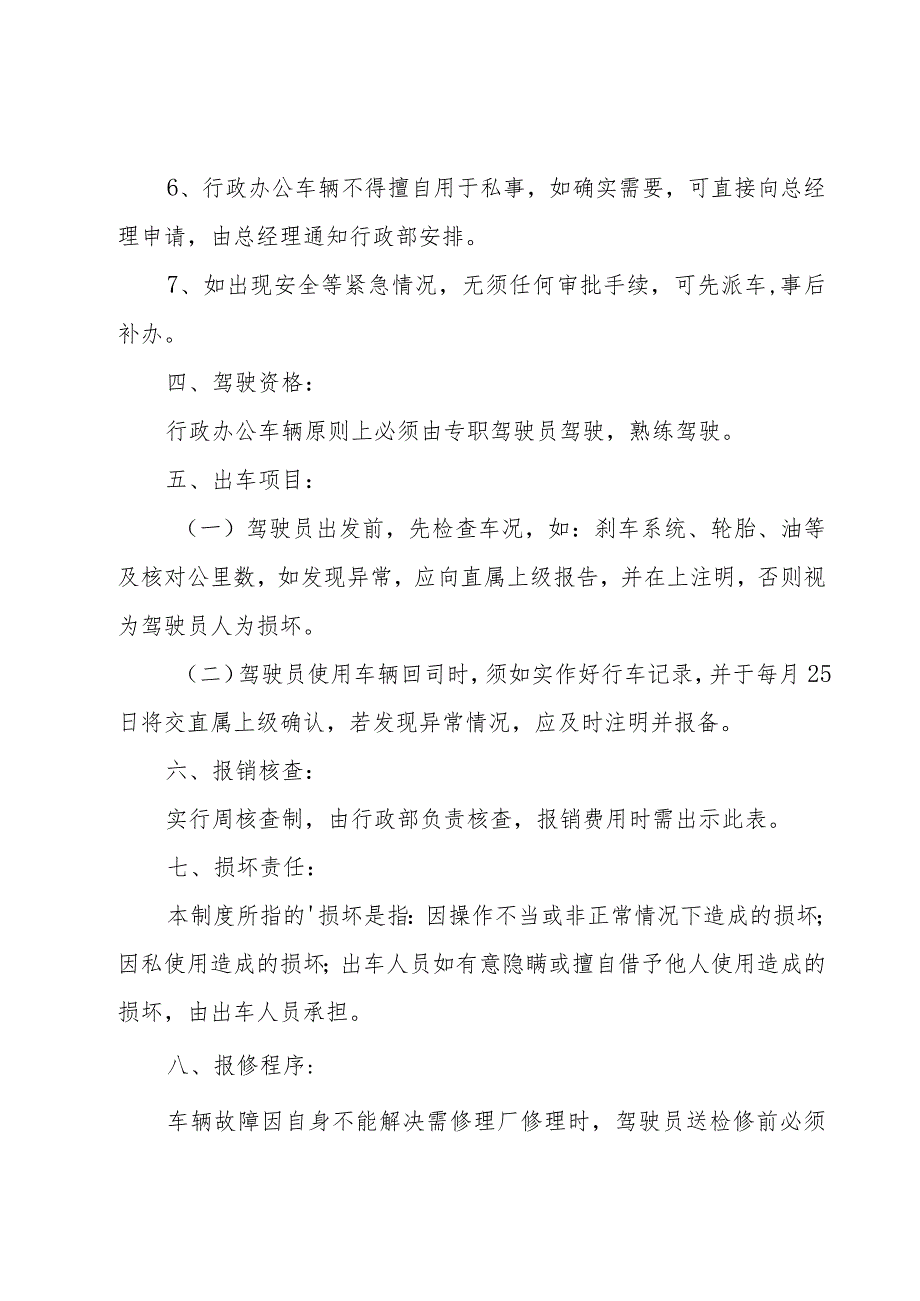 6、行政办公车辆不得擅自用于私事，如确实需要，可直接向总经
理申请，由总经理通知行政部安排。
7、如出现安全等紧急情况，无须任何审批手续，可先派车,事后
补办。
四、驾驶资格：
行政办公车辆原则上必须由专职驾驶员驾驶，熟练驾驶。
五、出车项目：
（一）驾驶员出发前，先检查车况，如：刹车系统、轮胎、油等
及核对公里数，如发现异常，应向直属上级报告，并在上注明，否则视
为驾驶员人为损坏。
（二）驾驶员使用车辆回司时，须如实作好行车记录，并于每月25
日将交直属上级确认，若发现异常情况，应及时注明并报备。
六、报销核查：
实行周核查制，由行政部负责核查，报销费用时需出示此表。
七、损坏责任：
本制度所指的'损坏是指：因操作不当或非正常情况下造成的损坏；
因私使用造成的损坏；出车人员如有意隐瞒或擅自借予他人使用造成的
损坏，由出车人员承担。
八、报修程序：
车辆故障因自身不能解决需修理厂修理时，驾驶员送检修前必须